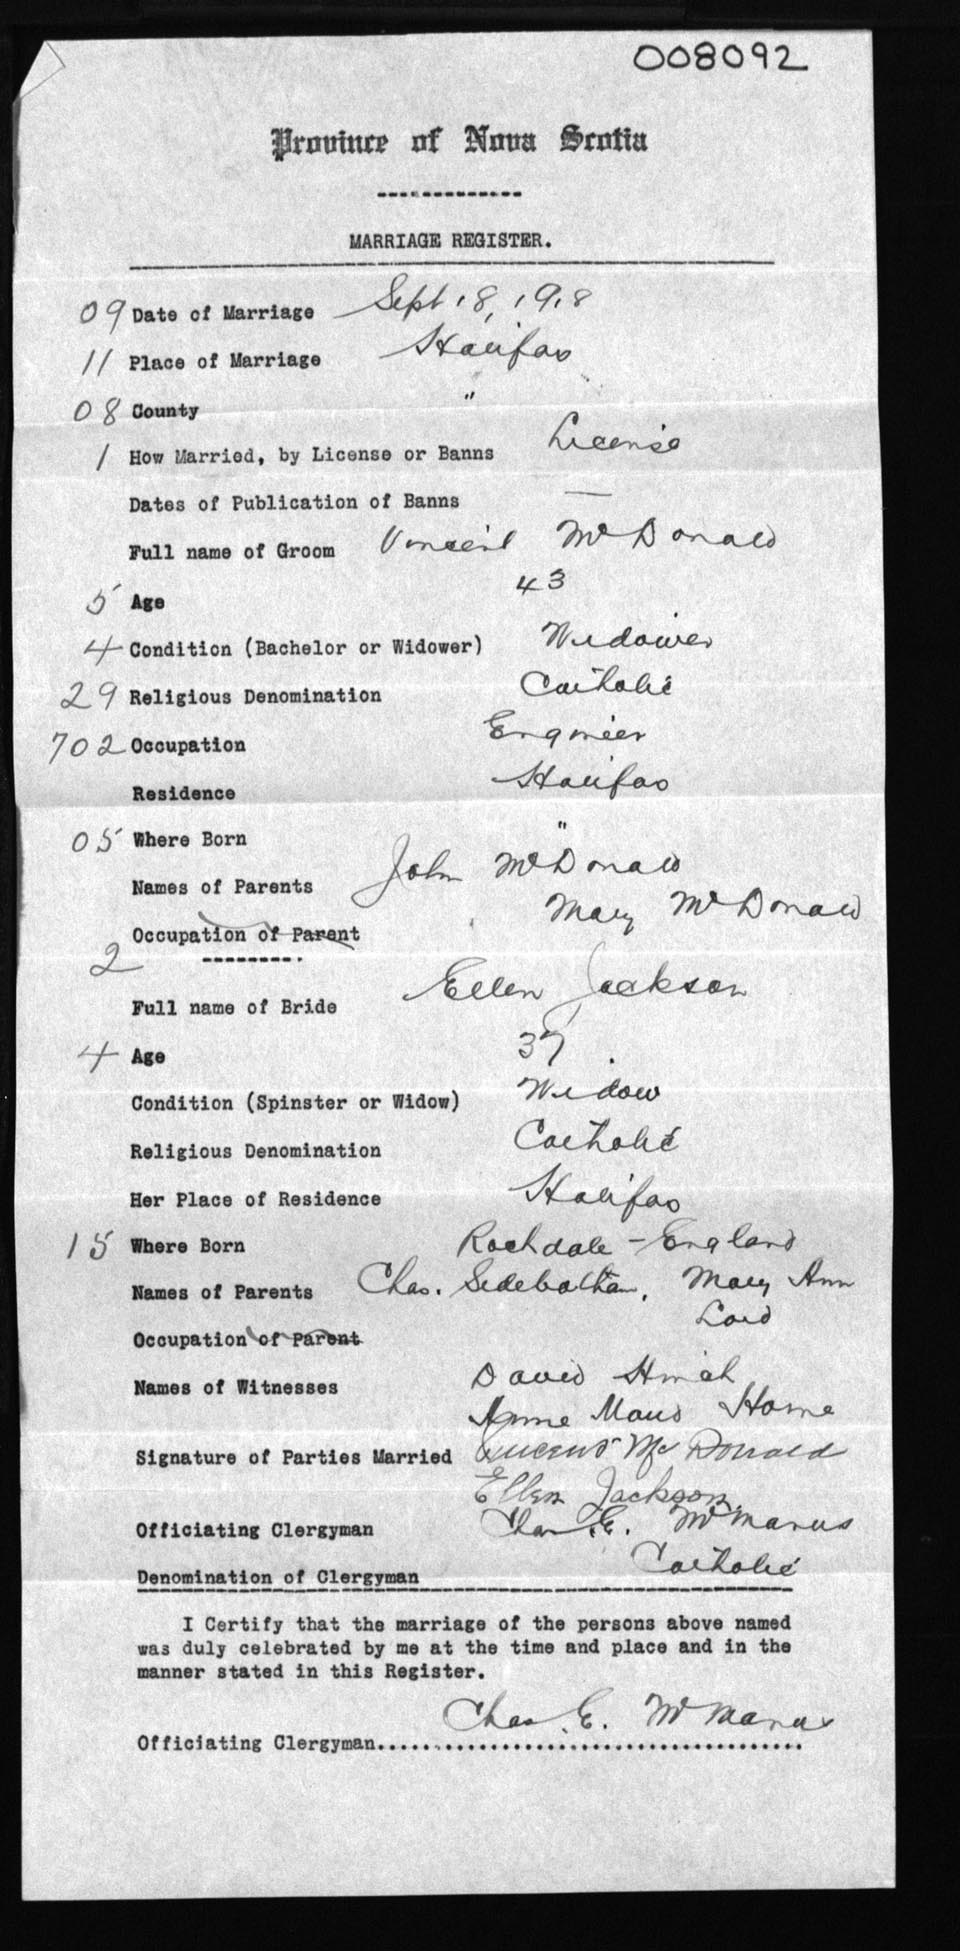 008092
Province of Nova Scotia
MARRIAGE REGISTER.
09 Date of Marriage Sept 18, 1918
11 Place of Marriage Halifax
08 County "
1 How Married, by License or Banns License
Dates of Publication of Banns —
Full name of Groom Vincent McDonald
5 Age 43
4 Condition (Bachelor or Widower) Widower
29 Religious Denomination Catholic
702 Occupation Engineer
Residence Halifax
05 Where Born "
Names of Parents John McDonald
Mary McDonald
Occupation of Parent
2
Full name of Bride Ellen Jackson
4 Age 37
Condition (Spinster or Widow) Widow
Religious Denomination Catholic
Her Place of Residence Halifax
15 Where Born Rochdale - England
Names of Parents Chas. Sidebotham, Mary Ann
Lord
Occupation of Parent
Names of Witnesses David
Maud Horne
Signature of Parties Married Vincent McDonald
Ellen Jackson
Officiating Clergyman Chas. E. McManus
Denomination of Clergyman Catholic
I Certify that the marriage of the persons above named
was duly celebrated by me at the time and place and in the
manner stated in this Register.
Chas. E. McManus
Officiating Clergyman........................................